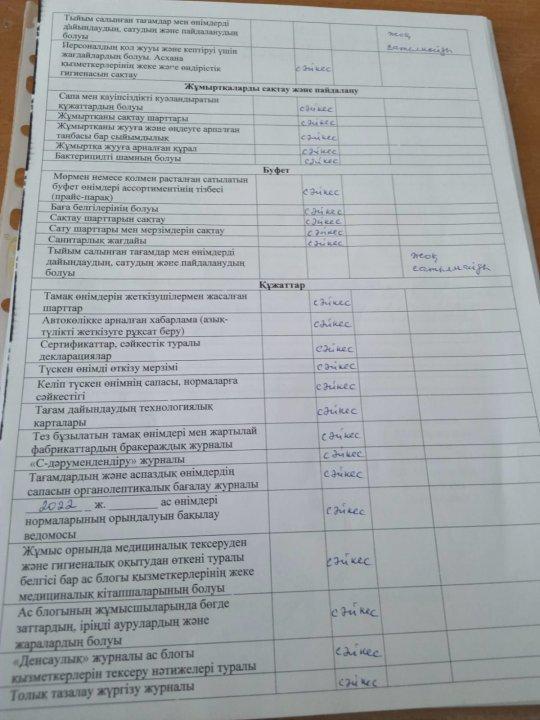 Тыйым салынған тағамдар мен өнімдерді
дайындаудың, сатудың және пайдаланудың
болуы
жоқ
сатылмайды
Персоналдың қол жууы және кептіруі үшін
жағдайлардың болуы. Асхана
қызметкерлерінің жеке және өндірістік
гигиенасын сақтау
сәйкес
Жұмыртқаларды сақтау және пайдалану
Сапа мен қауіпсіздікті куәландыратын
құжаттардың болуы
сәйкес
Жұмыртқаны сақтау шарттары
сәйкес
Жұмыртқаны жууға және өңдеуге арналған
таңбасы бар сыйымдылық
сәйкес
Жұмыртқа жууға арналған құрал
сәйкес
Бактерицидті шамның болуы
сәйкес
Буфет
Мөрмен немесе қолмен расталған сатылатын
буфет өнімдері ассортиментінің тізбесі
(прайс-парақ)
сәйкес
Баға белгілерінің болуы
сәйкес
Сақтау шарттарын сақтау
сәйкес
Сату шарттары мен мерзімдерін сақтау
сәйкес
Санитарлық жағдайы
сәйкес
Тыйым салынған тағамдар мен өнімдерді
дайындаудың, сатудың және пайдаланудың
болуы
жоқ
сатылмайды
Құжаттар
Тамақ өнімдерін жеткізушілермен жасалған
шарттар
сәйкес
Автокөлікке арналған хабарлама (азық-
түлікті жеткізуге рұқсат беру)
сәйкес
Сертификаттар, сәйкестік туралы
декларациялар
сәйкес
Түскен өнімді өткізу мерзімі
сәйкес
Келіп түскен өнімнің сапасы, нормаларға
сәйкестігі
сәйкес
Тағам дайындаудың технологиялық
карталары
сәйкес
Тез бұзылатын тамақ өнімдері мен жартылай
фабрикаттардың бракераждық журналы
сәйкес
«С-дәрумендендіру» журналы
сәйкес
Тағамдардың және аспаздық өнімдердің
сапасын органолептикалық бағалау журналы
сәйкес
2022 ж. ________ ас өнімдері
нормаларының орындалуын бақылау
ведомосы
сәйкес
Жұмыс орнында медициналық тексеруден
және гигиеналық оқытудан өткені туралы
белгісі бар ас блогы қызметкерлерінің жеке
медициналық кітапшаларының болуы
сәйкес
Ас блогының жұмысшыларында бөгде
заттардың, іріңді аурулардың және
жаралардың болуы
сәйкес
«Денсаулық» журналы ас блогы
қызметкерлерін тексеру нәтижелері туралы
сәйкес
Толық тазалау жүргізу журналы
сәйкес